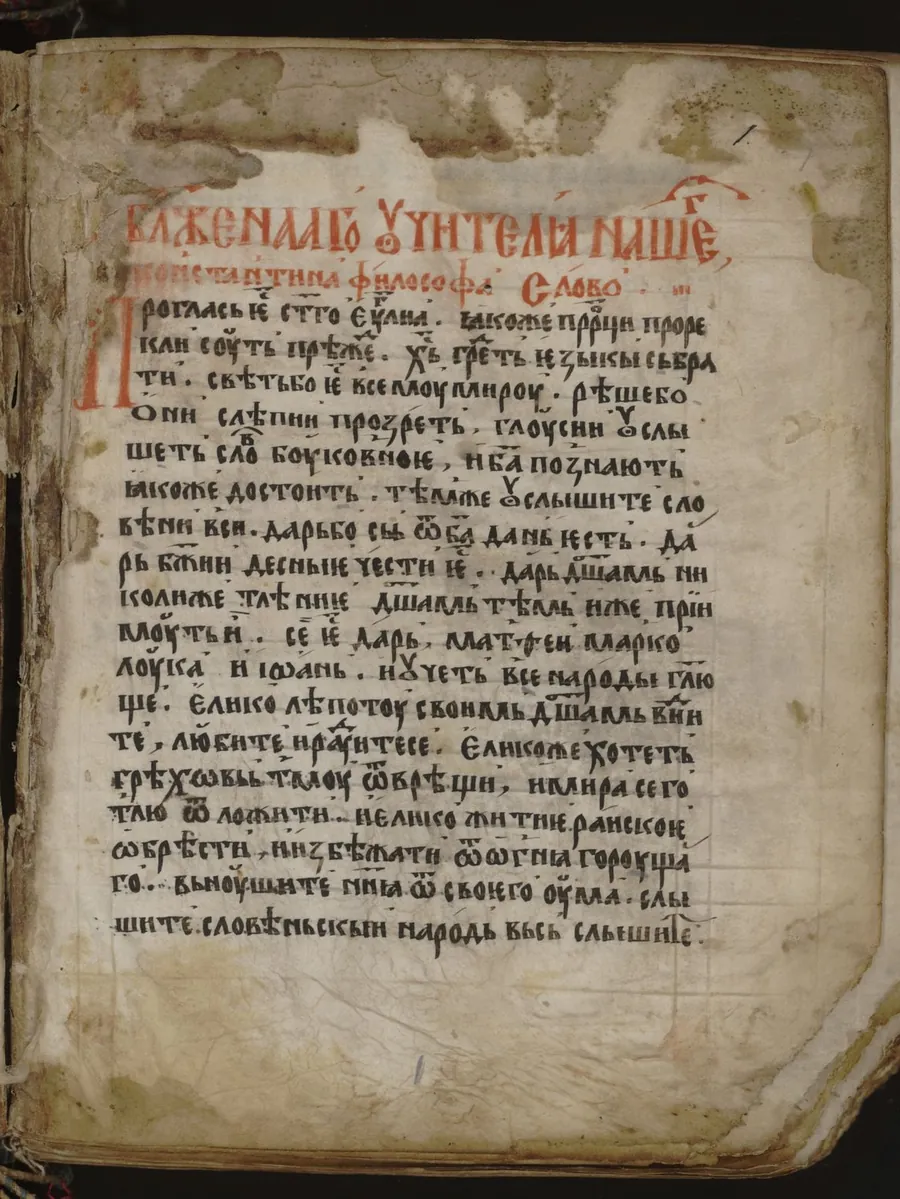 Блаженааго ѹчителꙗ нашег
константина философа слово
Прогласьѥ с҃тго е҃уⷢлиа. ꙗкоже прⷪ҇рци прорѣ
кли соуть прѣжⷣе. х҃ь гредⷮеть ѥзыкы сьбра
ти. свѣтьбо ѥⷭ҇ всемоумироу. рѣшебо
Они слѣпии прозреть, глоусии ѹслы
шеть слоⷡ боуковноѥ, и б҃а познають
ꙗкоже достоить. тѣмже ѹслышите сло
вѣни вси. дарьбо сы ѿ б҃а дань ѥсть. да
рь б҃жии десныѥ чести ѥⷭ҇. дарь д҃шамь ни
колиже тлѣниѥ д҃шамь тѣмь иже прїи
моуть и. се ѥⷭ҇ дарь, матѳеи марко
лоука и іѡань. иѹчеть все народы г҃лю
ще. Елико лѣпотоу своимь д҃шамь видⷣи
те, любите и радⷣуитесе. еликоже хотеть
грѣхѡвы тмоу ѿврѣщи, имира сего
тлю ѿложити. и елико житиѥ раискоѥ
ѡбрѣсти, и избѣжати ѿ ѡгнꙗ гороуща
го. вьноушите н҃нꙗ ѿ своѥго оума. слы
шите словѣньскыи народь вьсь слышите.
1